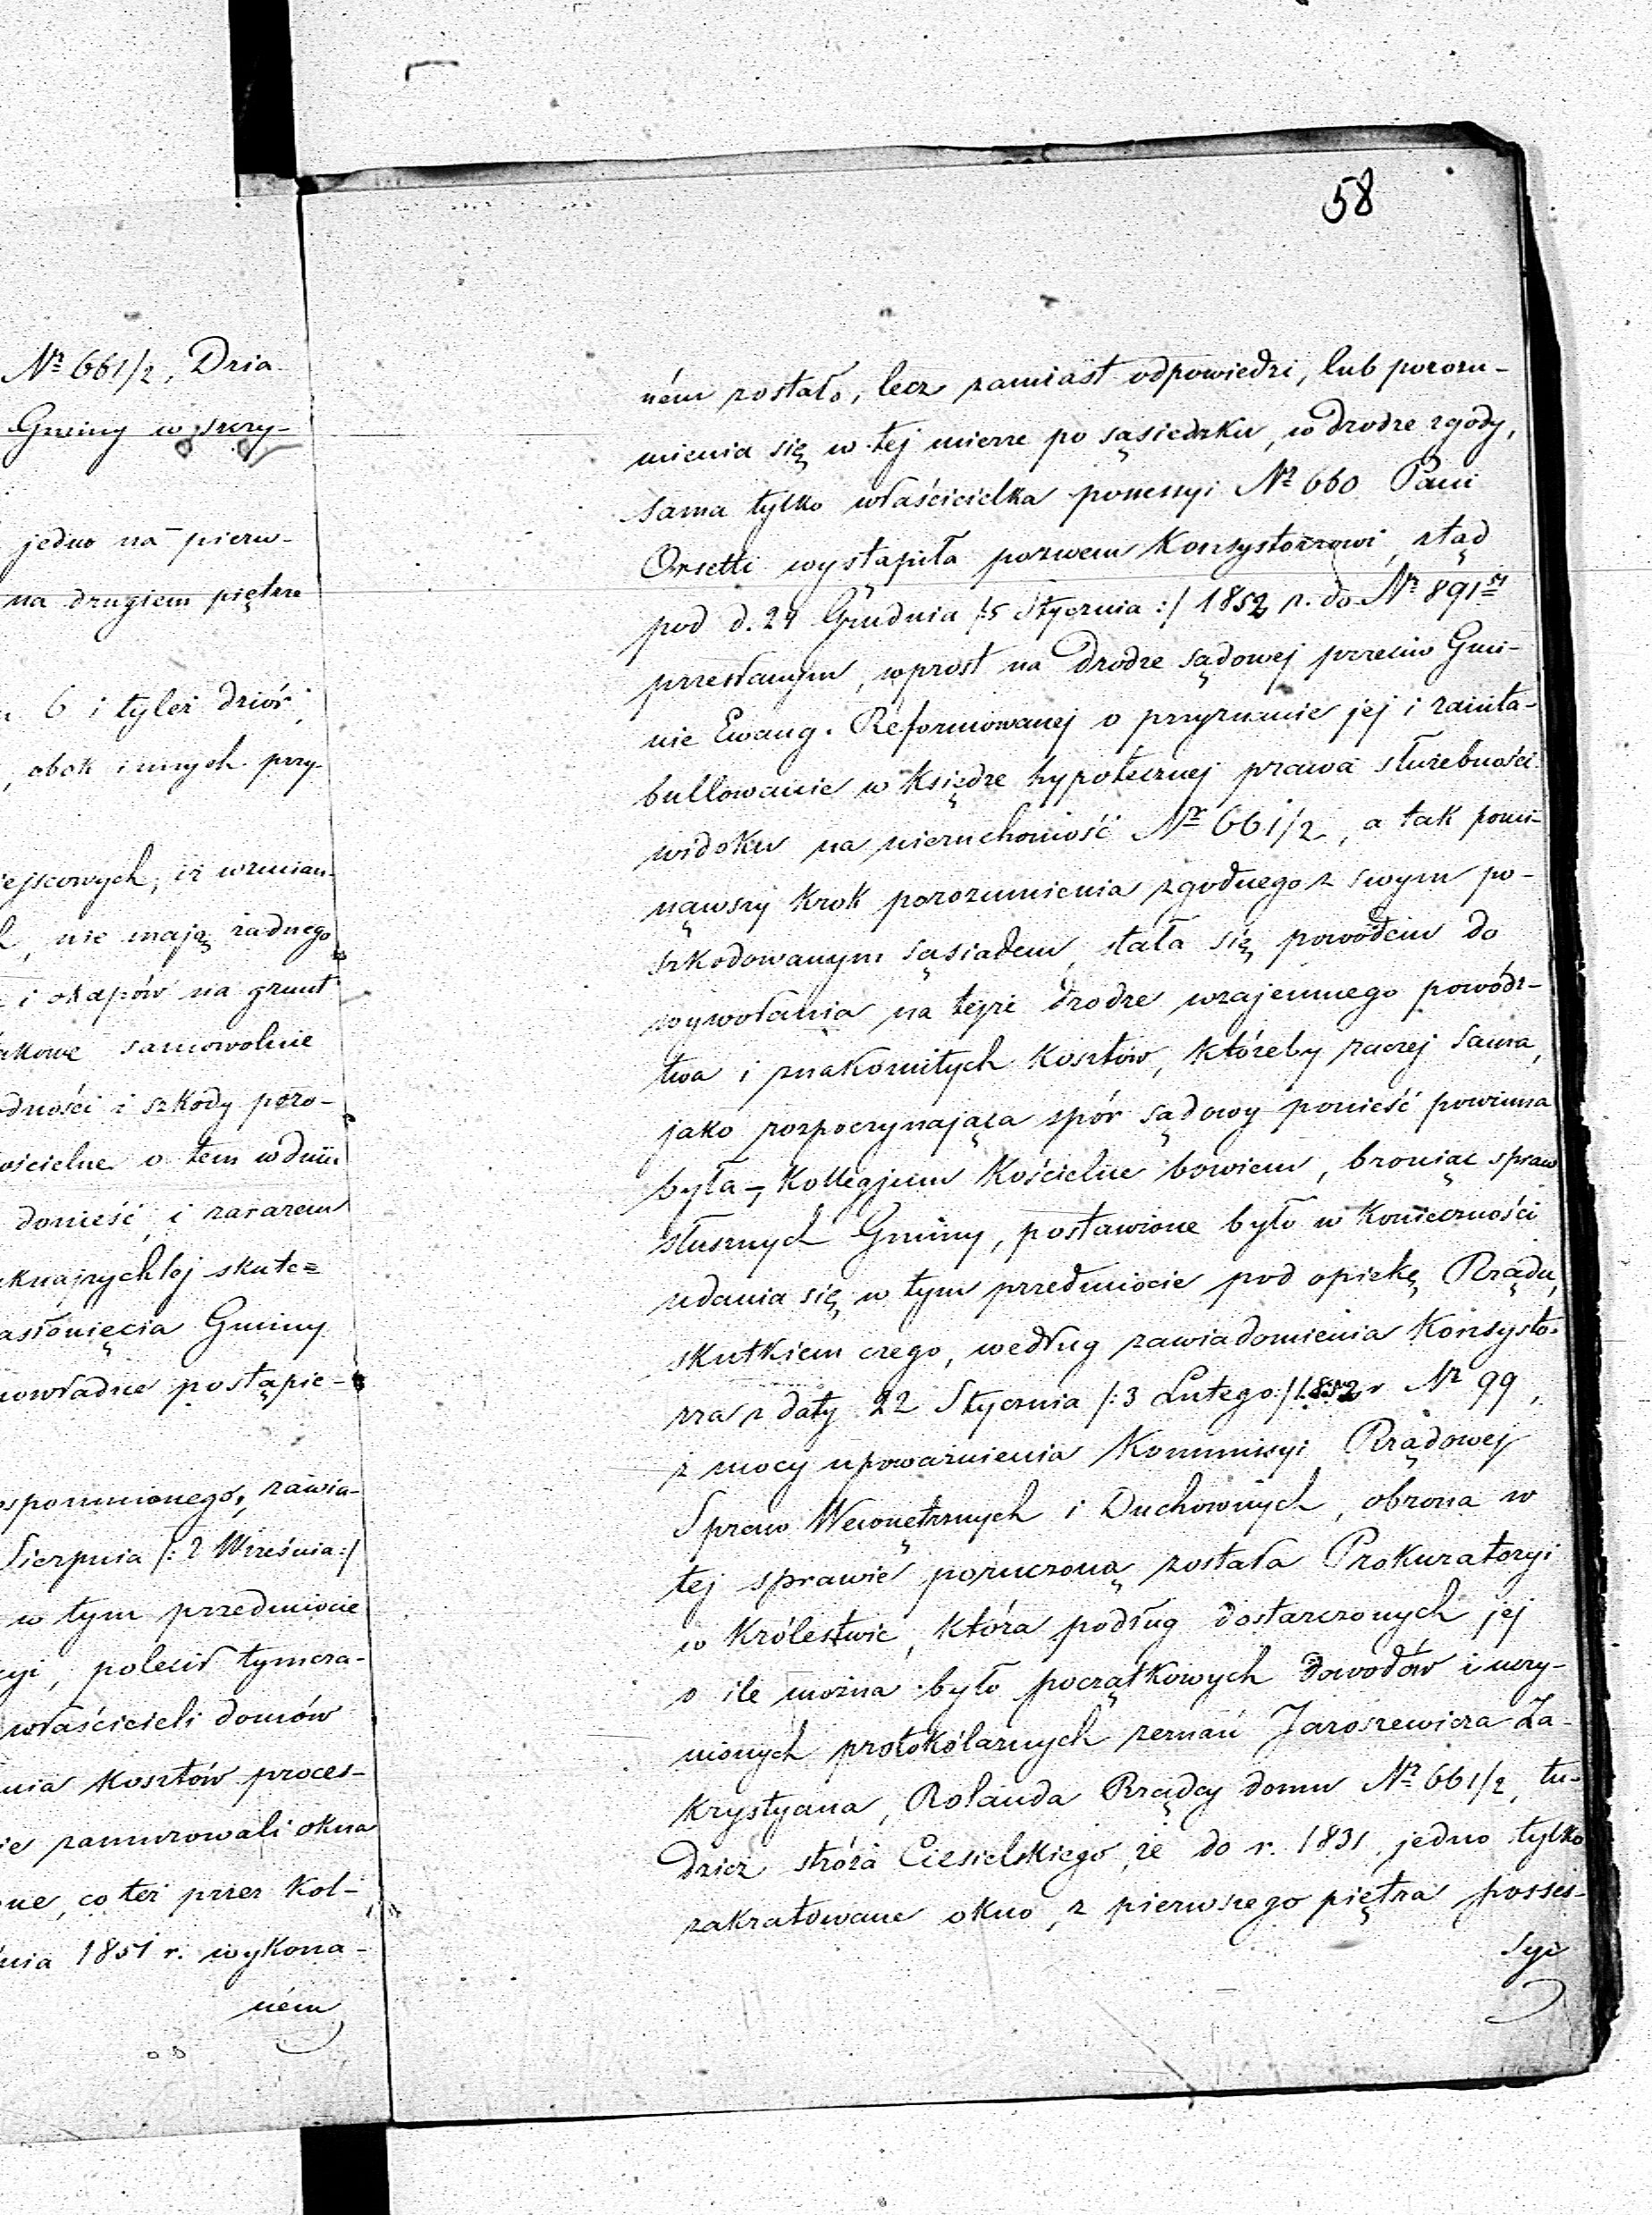 Nr 661/2, Dzia
Gminy w szczy-
jedno na pierw-
na drugiem piętrze
6 i tyleż dziór,
, obok innych przy-
ejscowych, iż wzmian-
, nie mają żadnego
i okapów na grunt
akowe samowolnie
dności i szkody pozo-
ościelne o tem w dniu
donieść, i zarazem
aknajrychlej skute=
asłonięcia Gminy
nowładne postąpie-
spomnionego, zawia-
Sierpnia /: 2 Września :/
w tym przedmiocie
cyi, polecił tymcza-
właścicieli domów
nia kosztów proces-
ie zamurowali okna
one, co też przez Kol-
nia 1851 r. wykona-
ném
58
ném zostało, lecz zamiast odpowiedzi, lub porozu-
mienia się w tej mierze po sąsiedzku, w drodze zgody,
sama tylko właścicielka possesyi Nr 660 Pani
Orsetti wystąpiła pozwem Konsystorzowi, ztąd
pod d. 24 Grudnia /: 5 Stycznia :/ 1852 r. do Nr 891
przesłanym, wprost na drodze sądowej przeciw Gmi-
nie Ewang. Reformowanej o przyznanie jej i zainta-
bullowanie w księdze hypotecznej prawa służebności
widoku na nieruchomość Nr 661/2, a tak pomi-
nąwszy krok porozumienia zgodnego z swym po-
szkodowanym sąsiadem, stała się powodem do
wywołania na tejże drodze wzajemnego powódz-
twa i znakomitych kosztów, któreby raczej sama,
jako rozpoczynająca spór sądowy ponieść powinna
była -, Kollegjum Kościelne bowiem, broniąc spraw
słusznych Gminy, postawione było w konieczności
udania się w tym przedmiocie pod opiekę Rządu,
skutkiem czego, według zawiadomienia Konsysto-
rza z daty 22 Stycznia /: 3 Lutego :/ 1852 r Nr 99,
z mocy upoważnienia Kommissyi Rządowej
Spraw Wewnętrznych i Duchownych, obrona w
tej sprawie poruczoną została Prokuratoryi
w Królestwie, która podług dostarczonych jej
o ile można było początkowych dowodów i uczy-
nionych protokólarnych zeznań Jaroszewicza Za-
krystyana, Rolanda Rządcy domu Nr 661/2, tu-
dzież stróża Ciesielskiego, że do r. 1831, jedno tylko
zakratowane okno, z pierwszego piętra posses-
syi